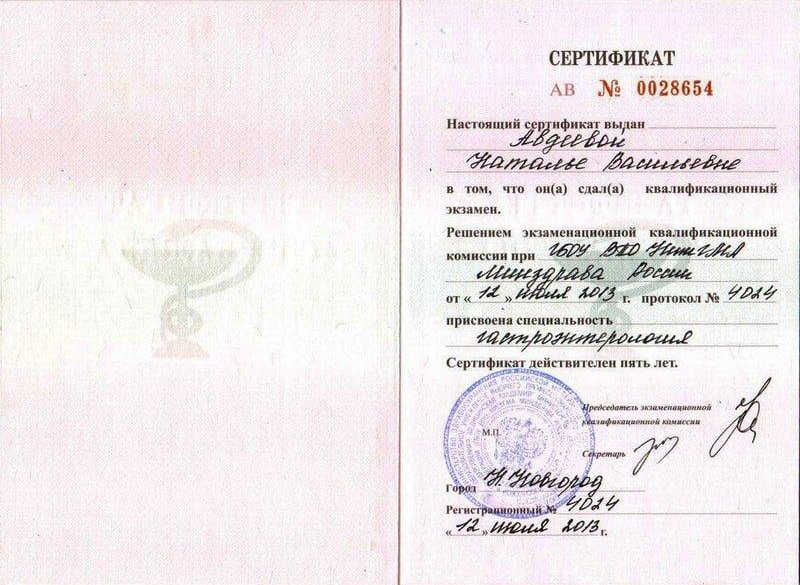 СЕРТИФИКАТ
АВ № 0028654
Настоящий сертификат выдан
Авдеевой
Наталье Васильевне
в том, что он(а) сдал(а) квалификационный
экзамен.
Решением экзаменационной квалификационной
комиссии при ГБОУ ВПО НижГМА
Минздрава России
от « 12 » июля 2013 г. протокол № 4024
присвоена специальность
гастроэнтерология
Сертификат действителен пять лет.
Председатель экзаменационной
квалификационной комиссии
М.П.
Секретарь
Город Н.Новгород
Регистрационный № 4024
« 12 » июля 2013 г.